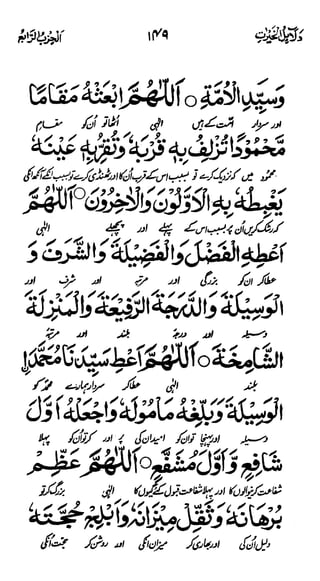 دَلَائِلُ الْخَيْرَاتِ ۱۴۹ اَلْحِزْبُ الرَّابِعُ
وَسَيِّدِ الْاُمَّةِ ○ اَللّٰهُمَّ ابْعَثْهُ مَقَامًا
اور سردار امت کے ہیں الٰہی اٹھا تو ان کو مقام
مَّحْمُوْدًا تُزْلِفُ بِهٖ قُرْبَهٗ وَتُقِرُّ بِهٖ عَيْنَهٗ
محمود میں کہ نزدیک کرے تو بسبب اس کے قرب ان کا اور ٹھنڈی کرے تو بسبب اسکے آنکھ انکی
يَغْبِطُهٗ بِهِ الْاَوَّلُوْنَ وَالْاٰخِرُوْنَ ○ اَللّٰهُمَّ
کہ رشک کریں ان پر بسبب اس کے پہلے اور پچھلے الٰہی
اَعْطِهِ الْفَضْلَ وَالْفَضِيْلَةَ وَالشَّرَفَ وَ
عطا کر ان کو بزرگی اور مرتبہ اور شرف اور
الْوَسِيْلَةَ وَالدَّرَجَةَ الرَّفِيْعَةَ وَالْمَنْزِلَةَ
وسیلہ اور درجہ بلند اور مرتبہ
الشَّامِخَةَ ○ اَللّٰهُمَّ اَعْطِ سَيِّدَنَا مُحَمَّدَ اِۨ
بلند الٰہی عطا کر سردار ہمارے محمد کو
الْوَسِيْلَةَ وَبَلِّغْهُ مَاْمُوْلَهٗ وَاجْعَلْهُ اَوَّلَ
وسیلہ اور پہنچا تو ان کو امید ان کی پر اور کر تو ان کو پہلا
شَافِعٍ وَّاَوَّلَ مُشَفَّعٍ ○ اَللّٰهُمَّ عَظِّمْ
شفاعت کرنیوالوں کا اور پہلا شفاعت قبول کئے گیوں کا الٰہی بزرگ کر تو
بُرْهَانَهٗ وَثَقِّلْ مِيْزَانَهٗ وَاَبْلِجْ حُجَّتَهٗ
دلیل ان کی اور بھاری کر میزان انکی اور روشن کر حجت انکی